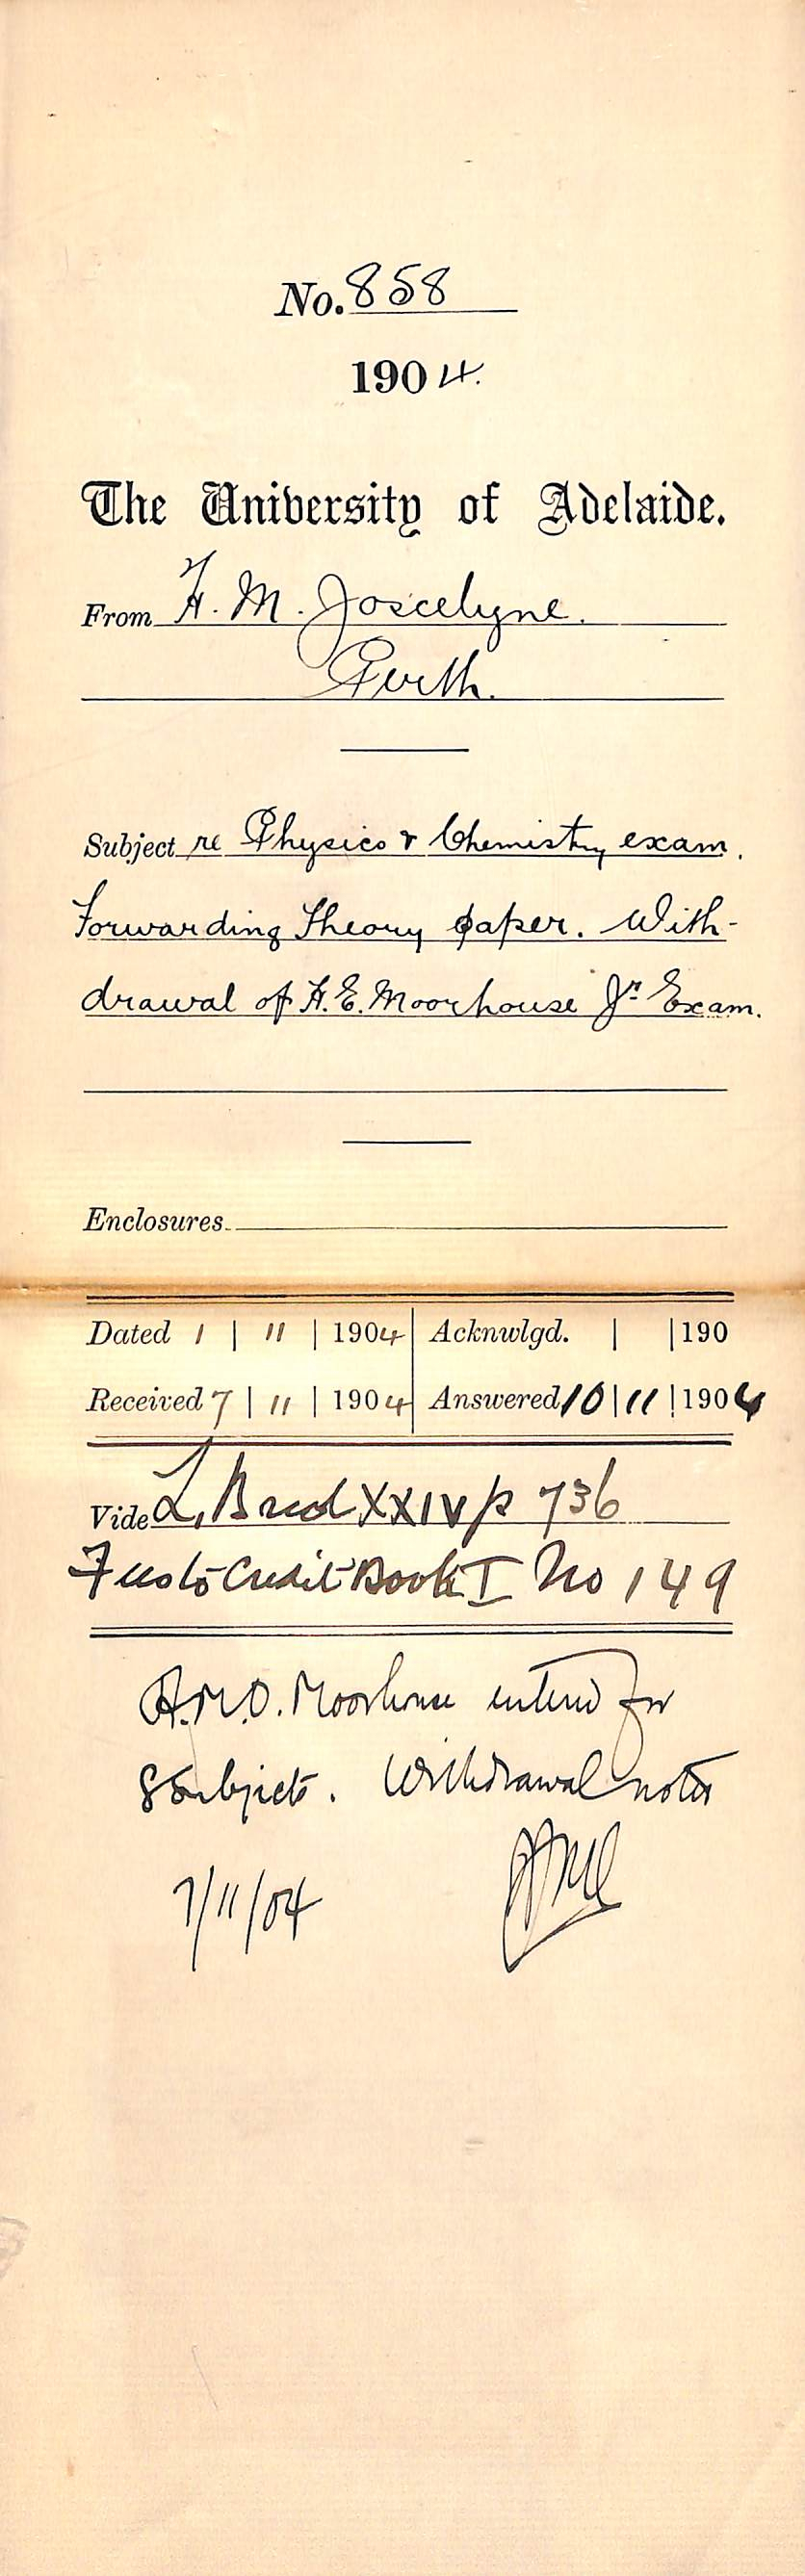 No. 858
1904.
The University of Adelaide.
From F. M. Joscelyne.
Perth.
Subject re Physics & Chemistry exam.
Forwarding Theory paper. With-
drawal of H. E. Moorhouse Jr Exam.
Enclosures
Dated 1 | 11 | 1904 Acknwlgd. | | 190
Received 7 | 11 | 1904 Answered 10 | 11 | 1904
Vide L. XXIV p 736
Fees to Credit Book I No 149
Moorhouse entered for
8 Subjects. Withdrawal noted
7/11/04